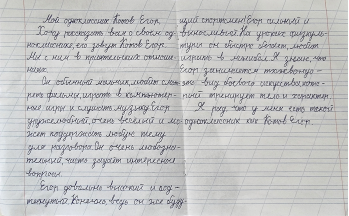 Мой одноклассник Котов Егор.
Хочу рассказать вам о своем од-
нокласснике, его зовут Котов Егор.
Мы с ним в приятельских отноше-
ниях.
Он обычный мальчик, любит смот-
реть фильмы, играть в компьютер-
ные игры и слушать музыку. Егор
дружелюбный, очень весёлый и мо-
жет поддержать любую тему
для разговора. Он очень любозна-
тельный, часто задаёт интересные
вопросы.
Егор довольно высокий и под-
тянутый. Конечно, ведь он же буду-
щий спортсмен! Егор сильный и
выносливый. На уроках физкуль-
туры он быстро бегает, любит
играть в волейбол. Я знаю, что
Егор занимается тхэквондо -
это вид боевого искусства, кото-
рый тренирует тело и характер.
Я рад, что у меня есть такой
одноклассник как Котов Егор.